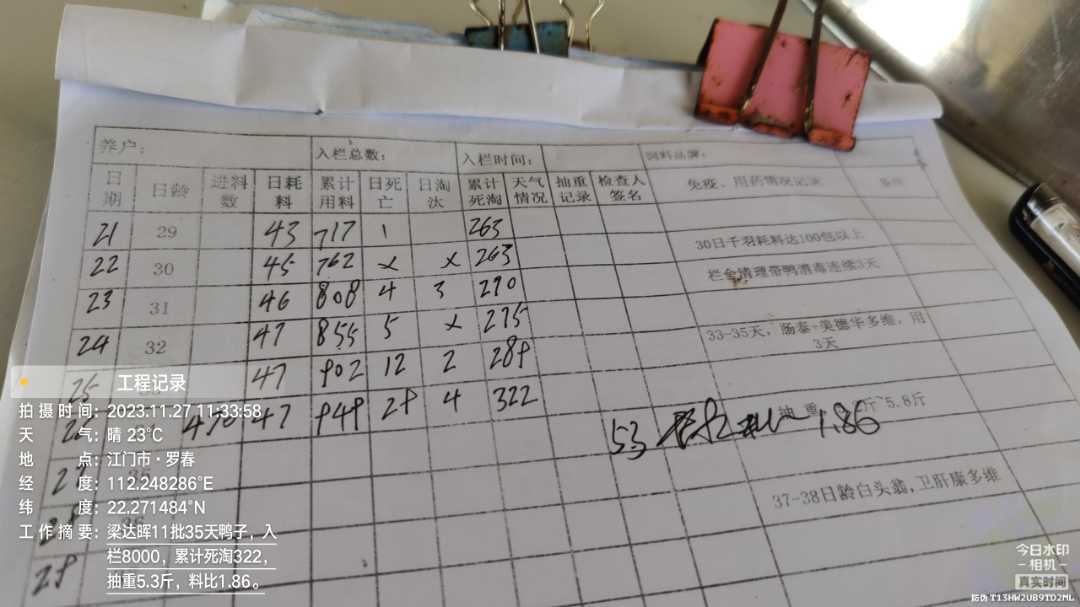 养户： 入栏总数： 入栏时间： 饲料品牌：
日期 日龄 进料数 日耗料 累计用料 日死亡 日淘汰 累计死淘 天气情况 抽重记录 检查人签名 免疫、用药情况记录 备注
21 29 43 717 1 263
22 30 45 762 x x 263 30日千羽耗料达100包以上
23 31 46 808 4 3 270 栏舍清理带鸭消毒连续3天
24 32 47 855 5 x 275 33-35天，肠泰+美德华多维，用3天
25 47 902 12 2 289
47 949 29 4 322 抽重 斤~5.8斤
53 1.86
27
37-38日龄白头翁，卫肝康多维
29
工程记录
拍摄时间：2023.11.27 11:33:58
天气：晴 23℃
地点：江门市·罗春
经度：112.248286°E
纬度：22.271484°N
工作摘要：梁达晖11批35天鸭子，入
栏8000，累计死淘322，
抽重5.3斤，料比1.86。
今日水印
-相机-
真实时间
防伪 T13HW2UB9TD2ML